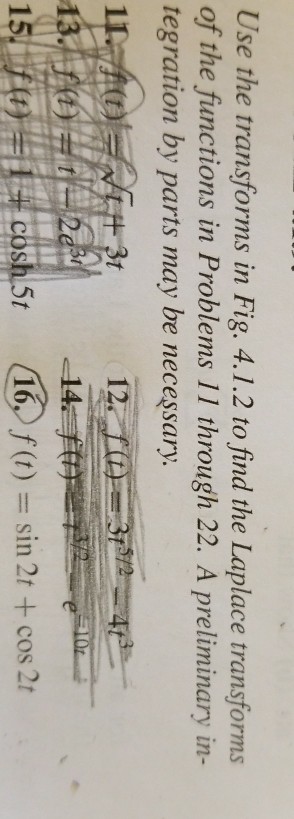 Use the transforms in Fig. 4.1.2 to find the Laplace transforms
of the functions in Problems 11 through 22. A preliminary in-
tegration by parts may be necessary.
11. f(t) = √t + 3t
12. f(t) = 3t^{5/2} − 4t^3
13. f(t) = t − 2e^{3t}
14. f(t) = t^{3/2} − e^{−10t}
15. f(t) = 1 + cosh 5t
16. f(t) = sin 2t + cos 2t